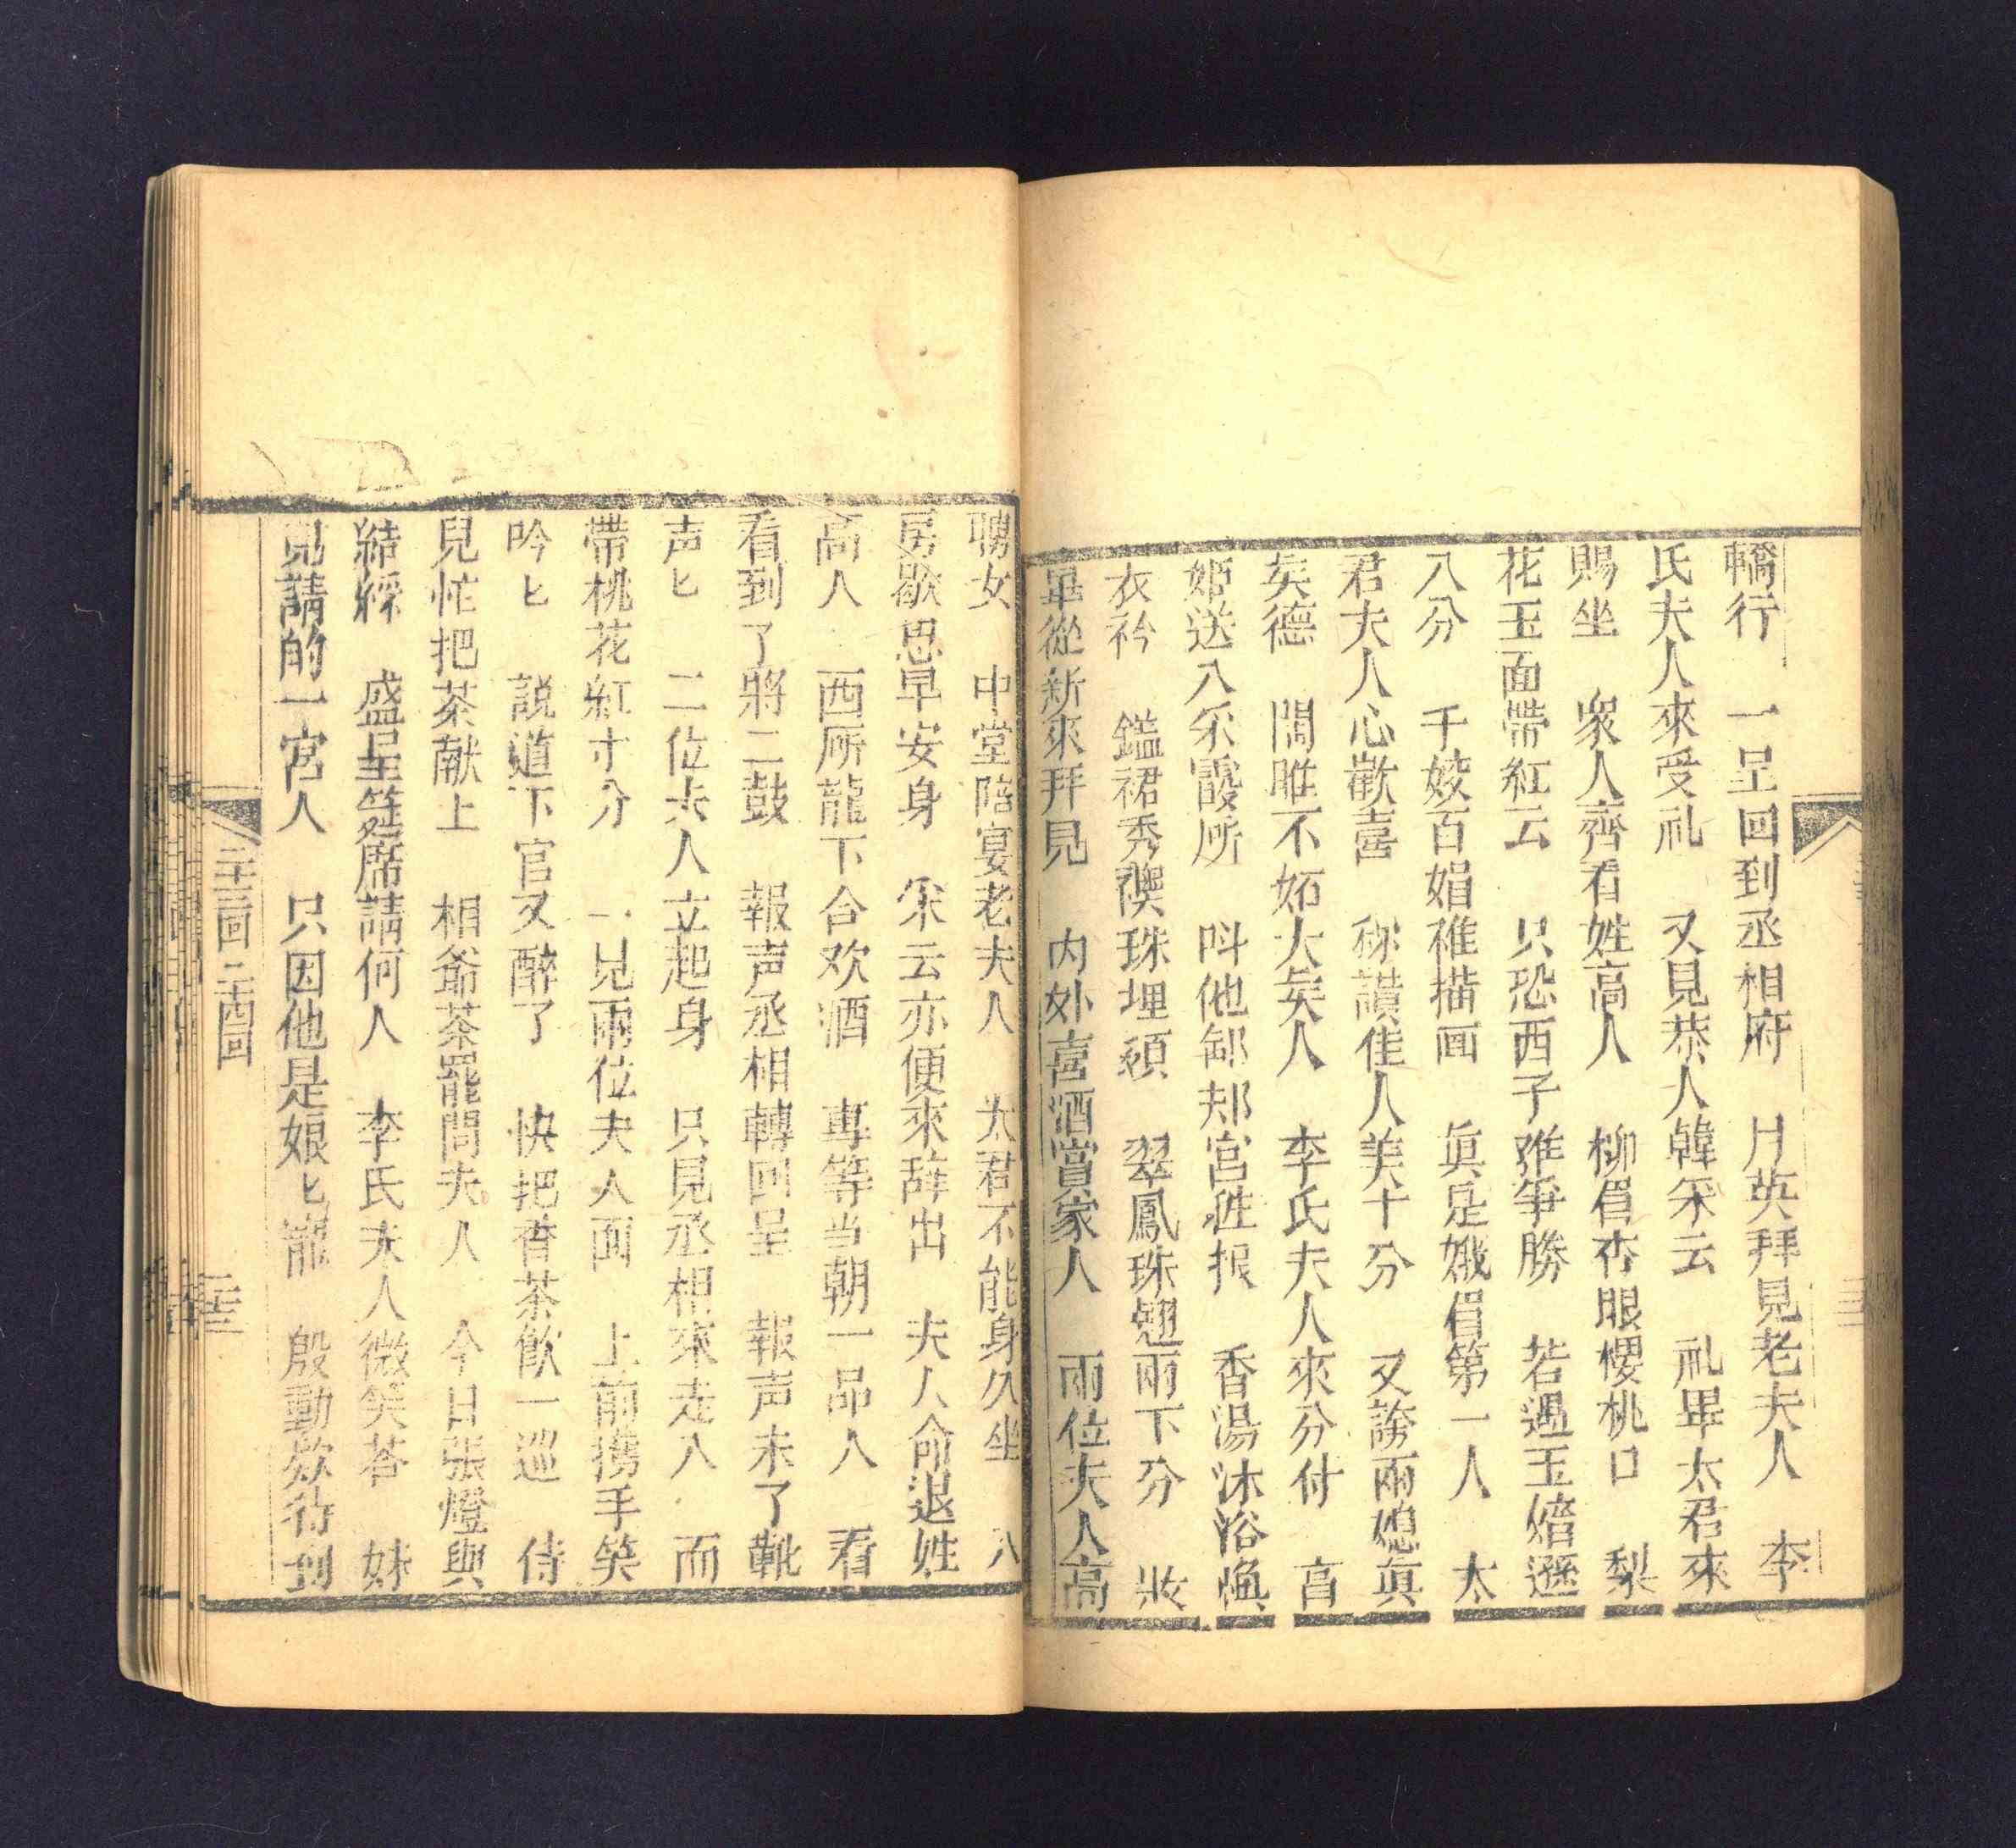 轎行　一呈回到丞相府　月英拜見老夫人　李
氏夫人來受礼　又見恭人韓采云　礼畢太君來
賜坐　衆人齊看姓高人　柳眉杏眼櫻桃口　梨
花玉面帶紅云　只恐西子难爭勝　若遇玉嬙遜
八分　千姣百娟难描画　眞是娥眉第一人　太
君夫人心歡喜　称讚佳人美十分　又誇兩媳眞
矣德　閞睢不妬大矣人　李氏夫人來分付　宫
姬送入采霞所　呌他卸却宮粧报　香湯沐浴煥
衣衿　鑑裙秀襖珠埋頸　翠鳳珠翘兩下分　妝
畢從新來拜見　内外喜酒當家人　兩位夫人高
聘女　中堂陪宴老夫人　太君不能身久坐　入
房歇思早安身　采云亦便來辞出　夫人命退姓
高人　西所龍下合欢酒　專等当朝一品人　看
看到了將二鼓　報声丞相轉回呈　報声未了靴
声匕　二位夫人立起身　只見丞相來走入　而
帶桃花紅十分　一見兩位夫人面　上前携手笑
吟匕　説道下官又醉了　快把香茶飲一巡　侍
兒忙把茶献上　相爺茶罷問夫人　今日張燈與
結綵　盛呈筵席請何人　李氏夫人微笑荅　妹
見請的一宮人　只因他是娘匕寵　殷動欵待到
二十三回二十四回
二十三